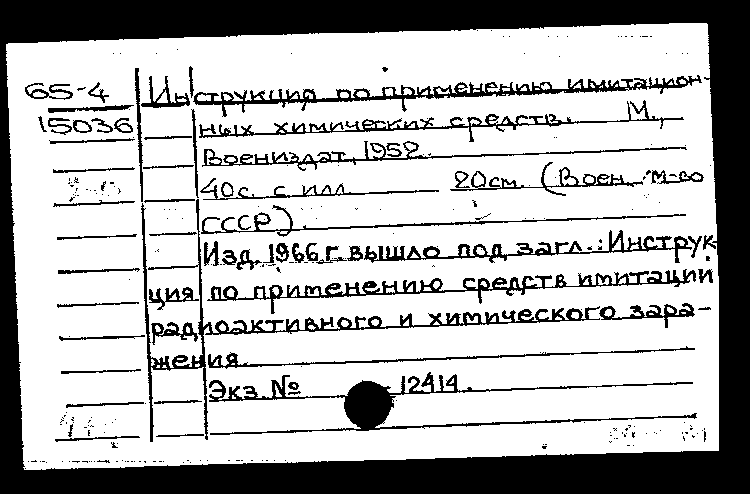 65-4
15036
Инструкция по применению имитацион-
ных химических средств. М.,
Воениздат, 1952.
40с. с илл. 20см. (Воен. м-во
СССР).
Изд. 1966 г. вышло под загл.: Инструк-
ция по применению средств имитации
радиоактивного и химического зара-
жения.
Экз. № 12414.